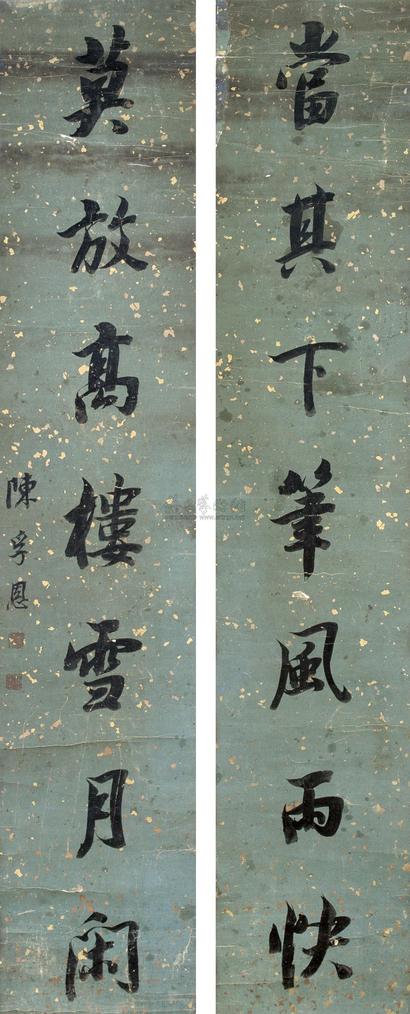 當其下筆風雨快
莫放高樓雪月閑
陳孚恩